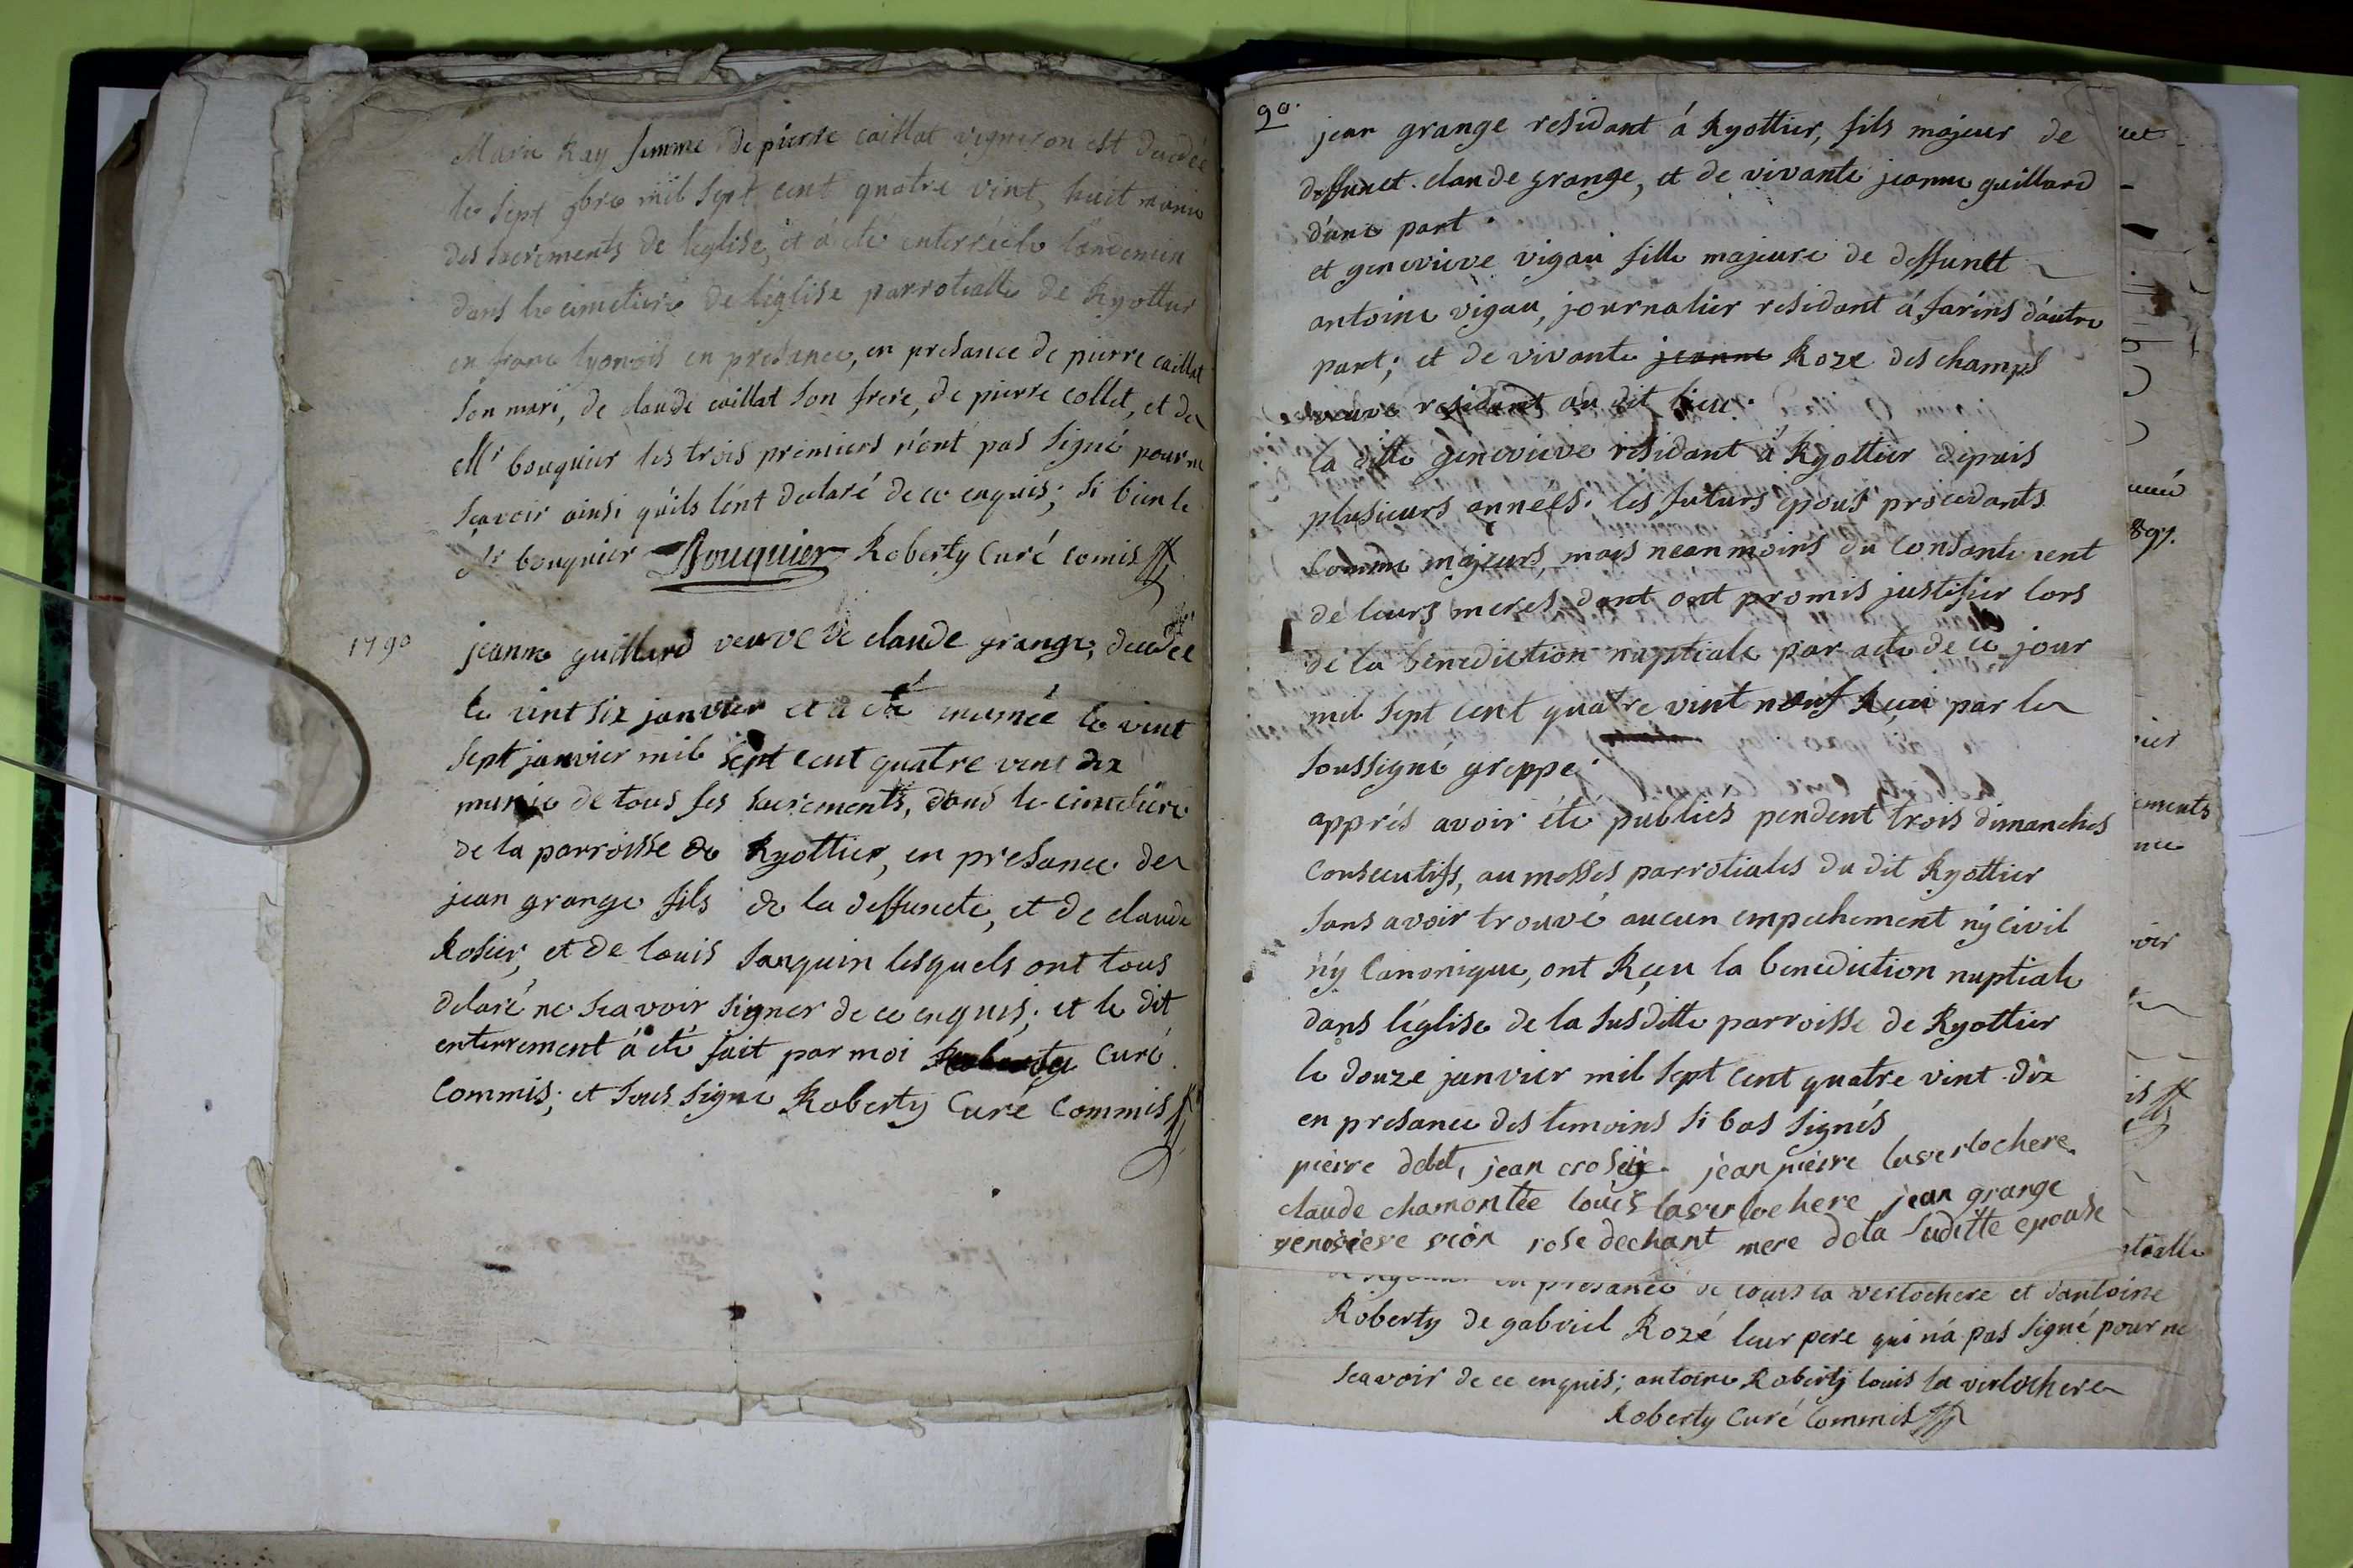 Marie Ray femme de pierre caillat vigneron est decedée
le sept 9bre mil sept cent quatre vint huit munie
des sacrements de l'eglise, et á été enterrée le landemin
dans le cimetiere de l'église parrotialle de Ryottier
en franc lyonois en presance, en presance de pierre caillat
son mari, de claude caillat son frere, de pierre collet, et de
Mr bouquier les trois premiers n'ont pas signé pour ne
scavoir ainsi qu'ils l'ont declaré de ce enquis; si bien le
Sr bouquier Bouquier Roberty Curé comis
1790 jeanne guillard veuve de claude grange, decedée
le vint six janvier et a été inumée le vint
sept janvier mil sept cent quatre vint dix
munie de tous ses sacrements, dans le cimetiere
de la parroisse de Ryottier, en presance de
jean grange fils de la deffuncte, et de claude
Rosier, et de louis sanquin lesquels ont tous
delaré ne scavoir signer de ce enquis; et le dit
enterrement á été fait par moi Roberty Curé
Commis; et sous signé Roberty Curé Commis
90.
jean grange residant á Ryottier, fils majeur de
deffunct claude grange, et de vivante jeanne guillard
d'une part.
et genevieve vigau fille majeure de deffunct
antoine vigau, journalier residant á farins d'autre
part; et de vivante jeanne Roze des champs
veuve residant au dit lieu.
la ditte genevieve residant á Ryottier depuis
plusieurs années. les futurs epous procedants
Comme majeurs, mais neanmoins du consante ment
de leurs meres dont ont promis justifier lors
de la benediction nuptiale par acte de ce jour
mil sept cent quatre vint neuf Reçu par le
soussigné greppe.
apprés avoir été publiés pendent trois dimanches
consecutifs, au messes parrotiales du dit Ryottier
sans avoir trouvé aucun empechement ny civil
n'y Canonique, ont Reçu la benediction nuptiale
dans l'église de la susditte parroisse de Ryottier
le douze janvier mil sept cent quatre vint dix
en presance des temoins si bas signés
pierre debet, jean crosey jean pierre laverlochere
claude chamontée louis laverlochere jean grange
genevieve vion rose dechant mere dela suditte epouse
en presance de louis la verlochere et d'antoine
Roberty de gabriel Rozé leur pere qui n'a pas signé pour ne
scavoir de ce enquis; antoine Roberty louis la verlochere
Roberty Curé Commis